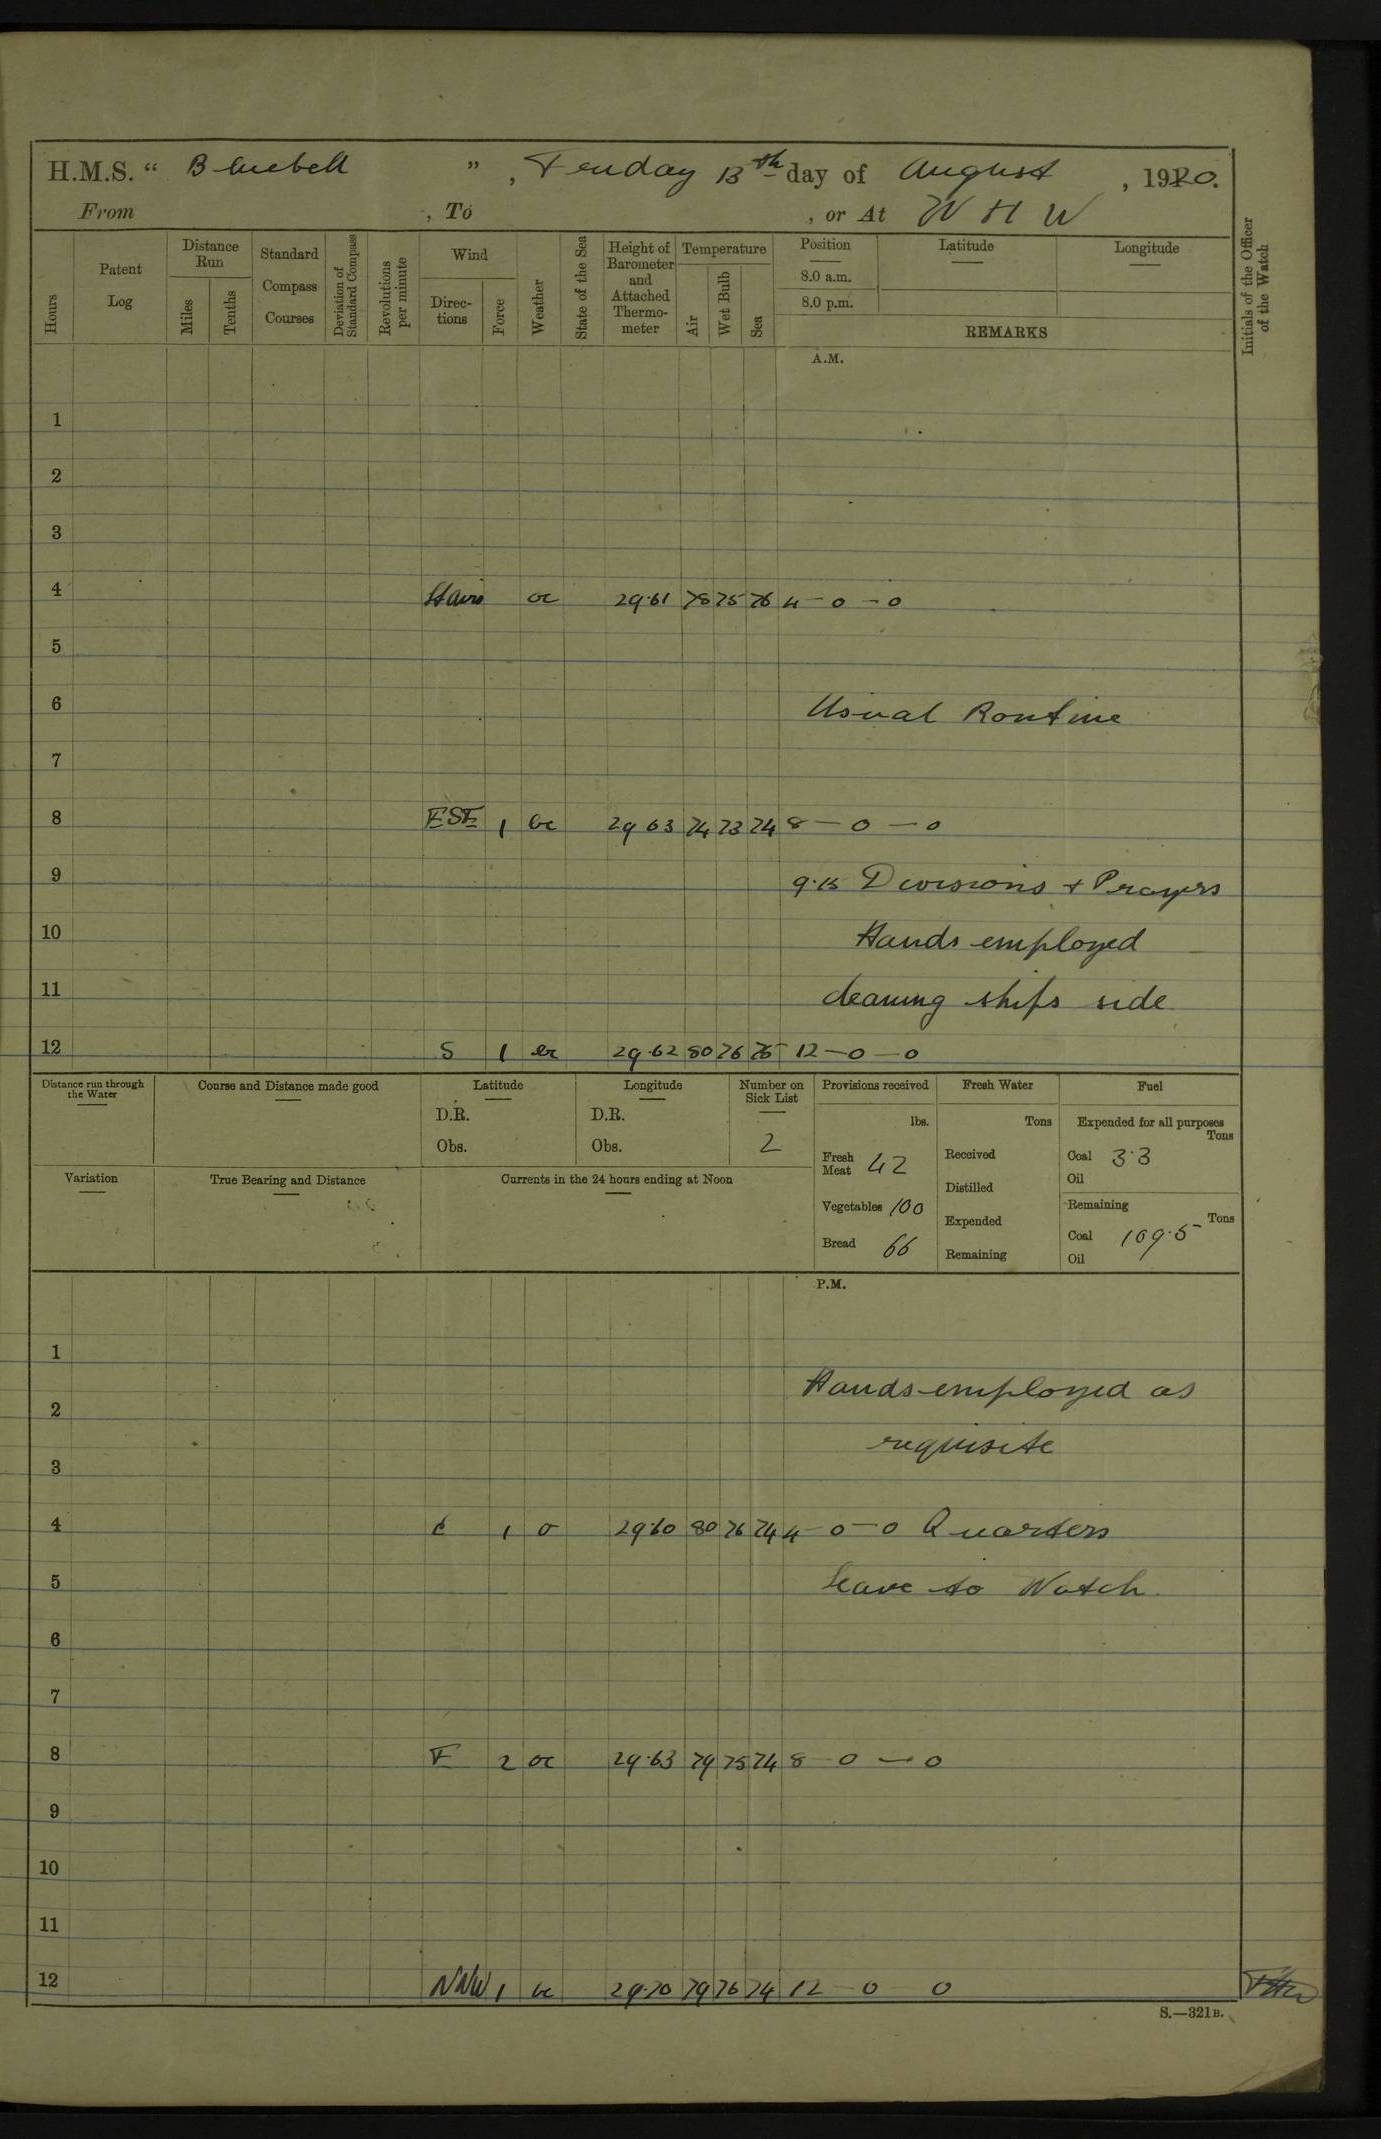 H.M.S. “ Bluebell ” , Friday 13th day of August , 1920.
From , To , or At W H W
Hours
Patent Log
Distance Run
Miles
Tenths
Standard Compass Courses
Deviation of Standard Compass
Revolutions per minute
Wind
Directions
Force
Weather
State of the Sea
Height of Barometer and Attached Thermometer
Temperature
Air
Wet Bulb
Sea
Position
8.0 a.m.
8.0 p.m.
Latitude
Longitude
REMARKS
Initials of the Officer of the Watch
A.M.
1
2
3
4 oc 29.61 78 75 76 4 - 0 - 0
5
6 Usual Routine
7
8 ESE 1 bc 29 63 74 73 74 8 - 0 - 0
9 9.15 Divisions + Prayers
10 Hands employed
11 cleaning ships side
12 S 1 bc 29.62 80 76 75 12 - 0 - 0
Distance run through the Water
Course and Distance made good
Latitude
D.R.
Obs.
Longitude
D.R.
Obs.
Number on Sick List
2
Provisions received
lbs.
Fresh Meat 42
Vegetables 100
Bread 66
Fresh Water
Tons
Received
Distilled
Expended
Remaining
Fuel
Expended for all purposes
Tons
Coal 3.3
Oil
Remaining
Tons
Coal 109.5
Oil
Variation
True Bearing and Distance
Currents in the 24 hours ending at Noon
P.M.
1
Hands employed as
2
requisite
3
4 1 o 29.60 80 76 74 4 - 0 - 0 Quarters
5 Leave to Watch.
6
7
8 E 2 oc 29.63 79 75 74 8 - 0 - 0
9
10
11
12 NNW 1 bc 29.70 79 76 74 12 - 0 0
S.—321B.